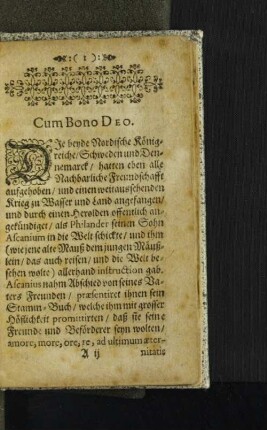 :( 1 ):
Cum Bono DEO.
DJe beyde Nordische König-
reiche/ Schweden und Den-
nemarck/ hatten eben alle
Nachbarliche Freundschafft
aufgehoben/ und einen weitaussehenden
Krieg zu Wasser und Land angefangen/
und durch einen Herolden offentlich an-
gekündiget/ als Philander seinen Sohn
Ascanium in die Welt schickte/ und ihm
(wie jene alte Mauß dem jungen Mäuß-
lein/ das auch reisen/ und die Welt be-
sehen wolte) allerhand instruction gab.
Ascanius nahm Abschied von seines Va-
ters Freunden/ præsentiret ihnen sein
Stamm-Buch/ welche ihm mit grosser
Höflichkeit promittirten/ daß sie seine
Freunde und Beförderer seyn wolten/
amore, more, ore, re, ad ultimum æter-
A ij nitatis